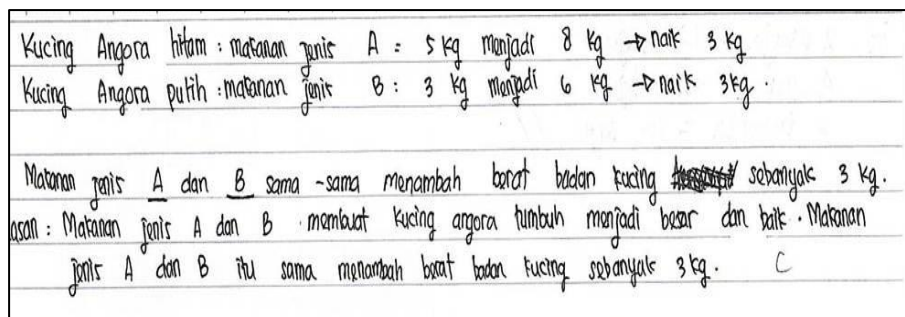 Kucing Angora hitam : makanan jenis A : 5 kg menjadi 8 kg → naik 3 kg
Kucing Angora putih : makanan jenis B : 3 kg menjadi 6 kg → naik 3kg .
Makanan jenis A dan B sama -sama menambah berat badan kucing sebanyak 3 kg.
asan : Makanan jenis A dan B membuat kucing angora tumbuh menjadi besar dan baik . Makanan
jenis A dan B itu sama menambah berat badan kucing sebanyak 3 kg. C